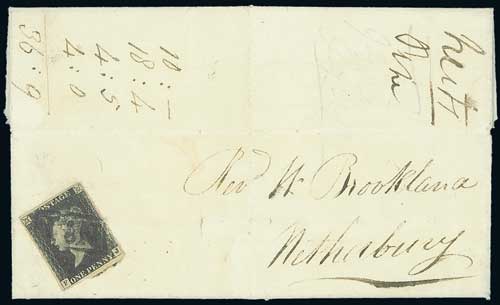 10 : –
18 : 4
4 : 5
4 : 0
36 : 9
POSTAGE
ONE PENNY
Revd W Brookland
Netherbury